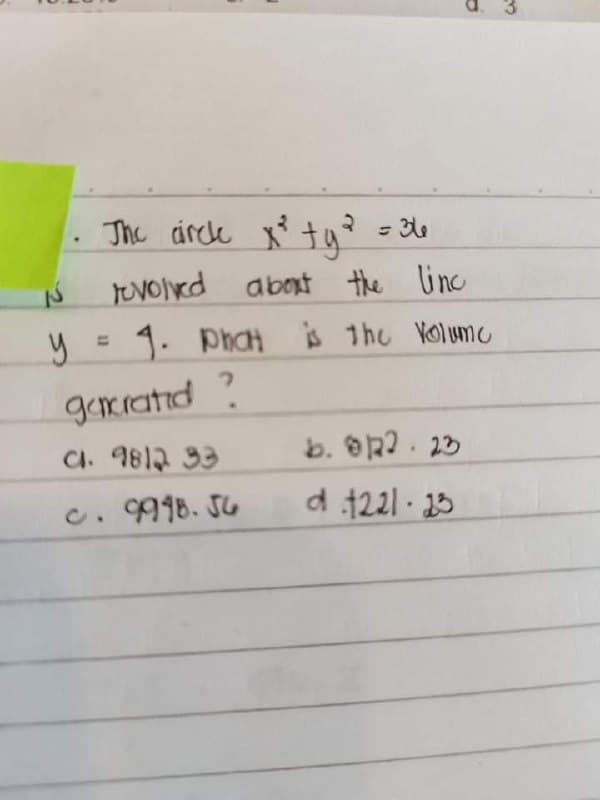 d. 3
. The circle x² + y² = 36
is revolved about the line
y = 9. What is the Volume
generated ?
a. 9812.33 b. 8122.23
c. 9998.56 d. 7221.23